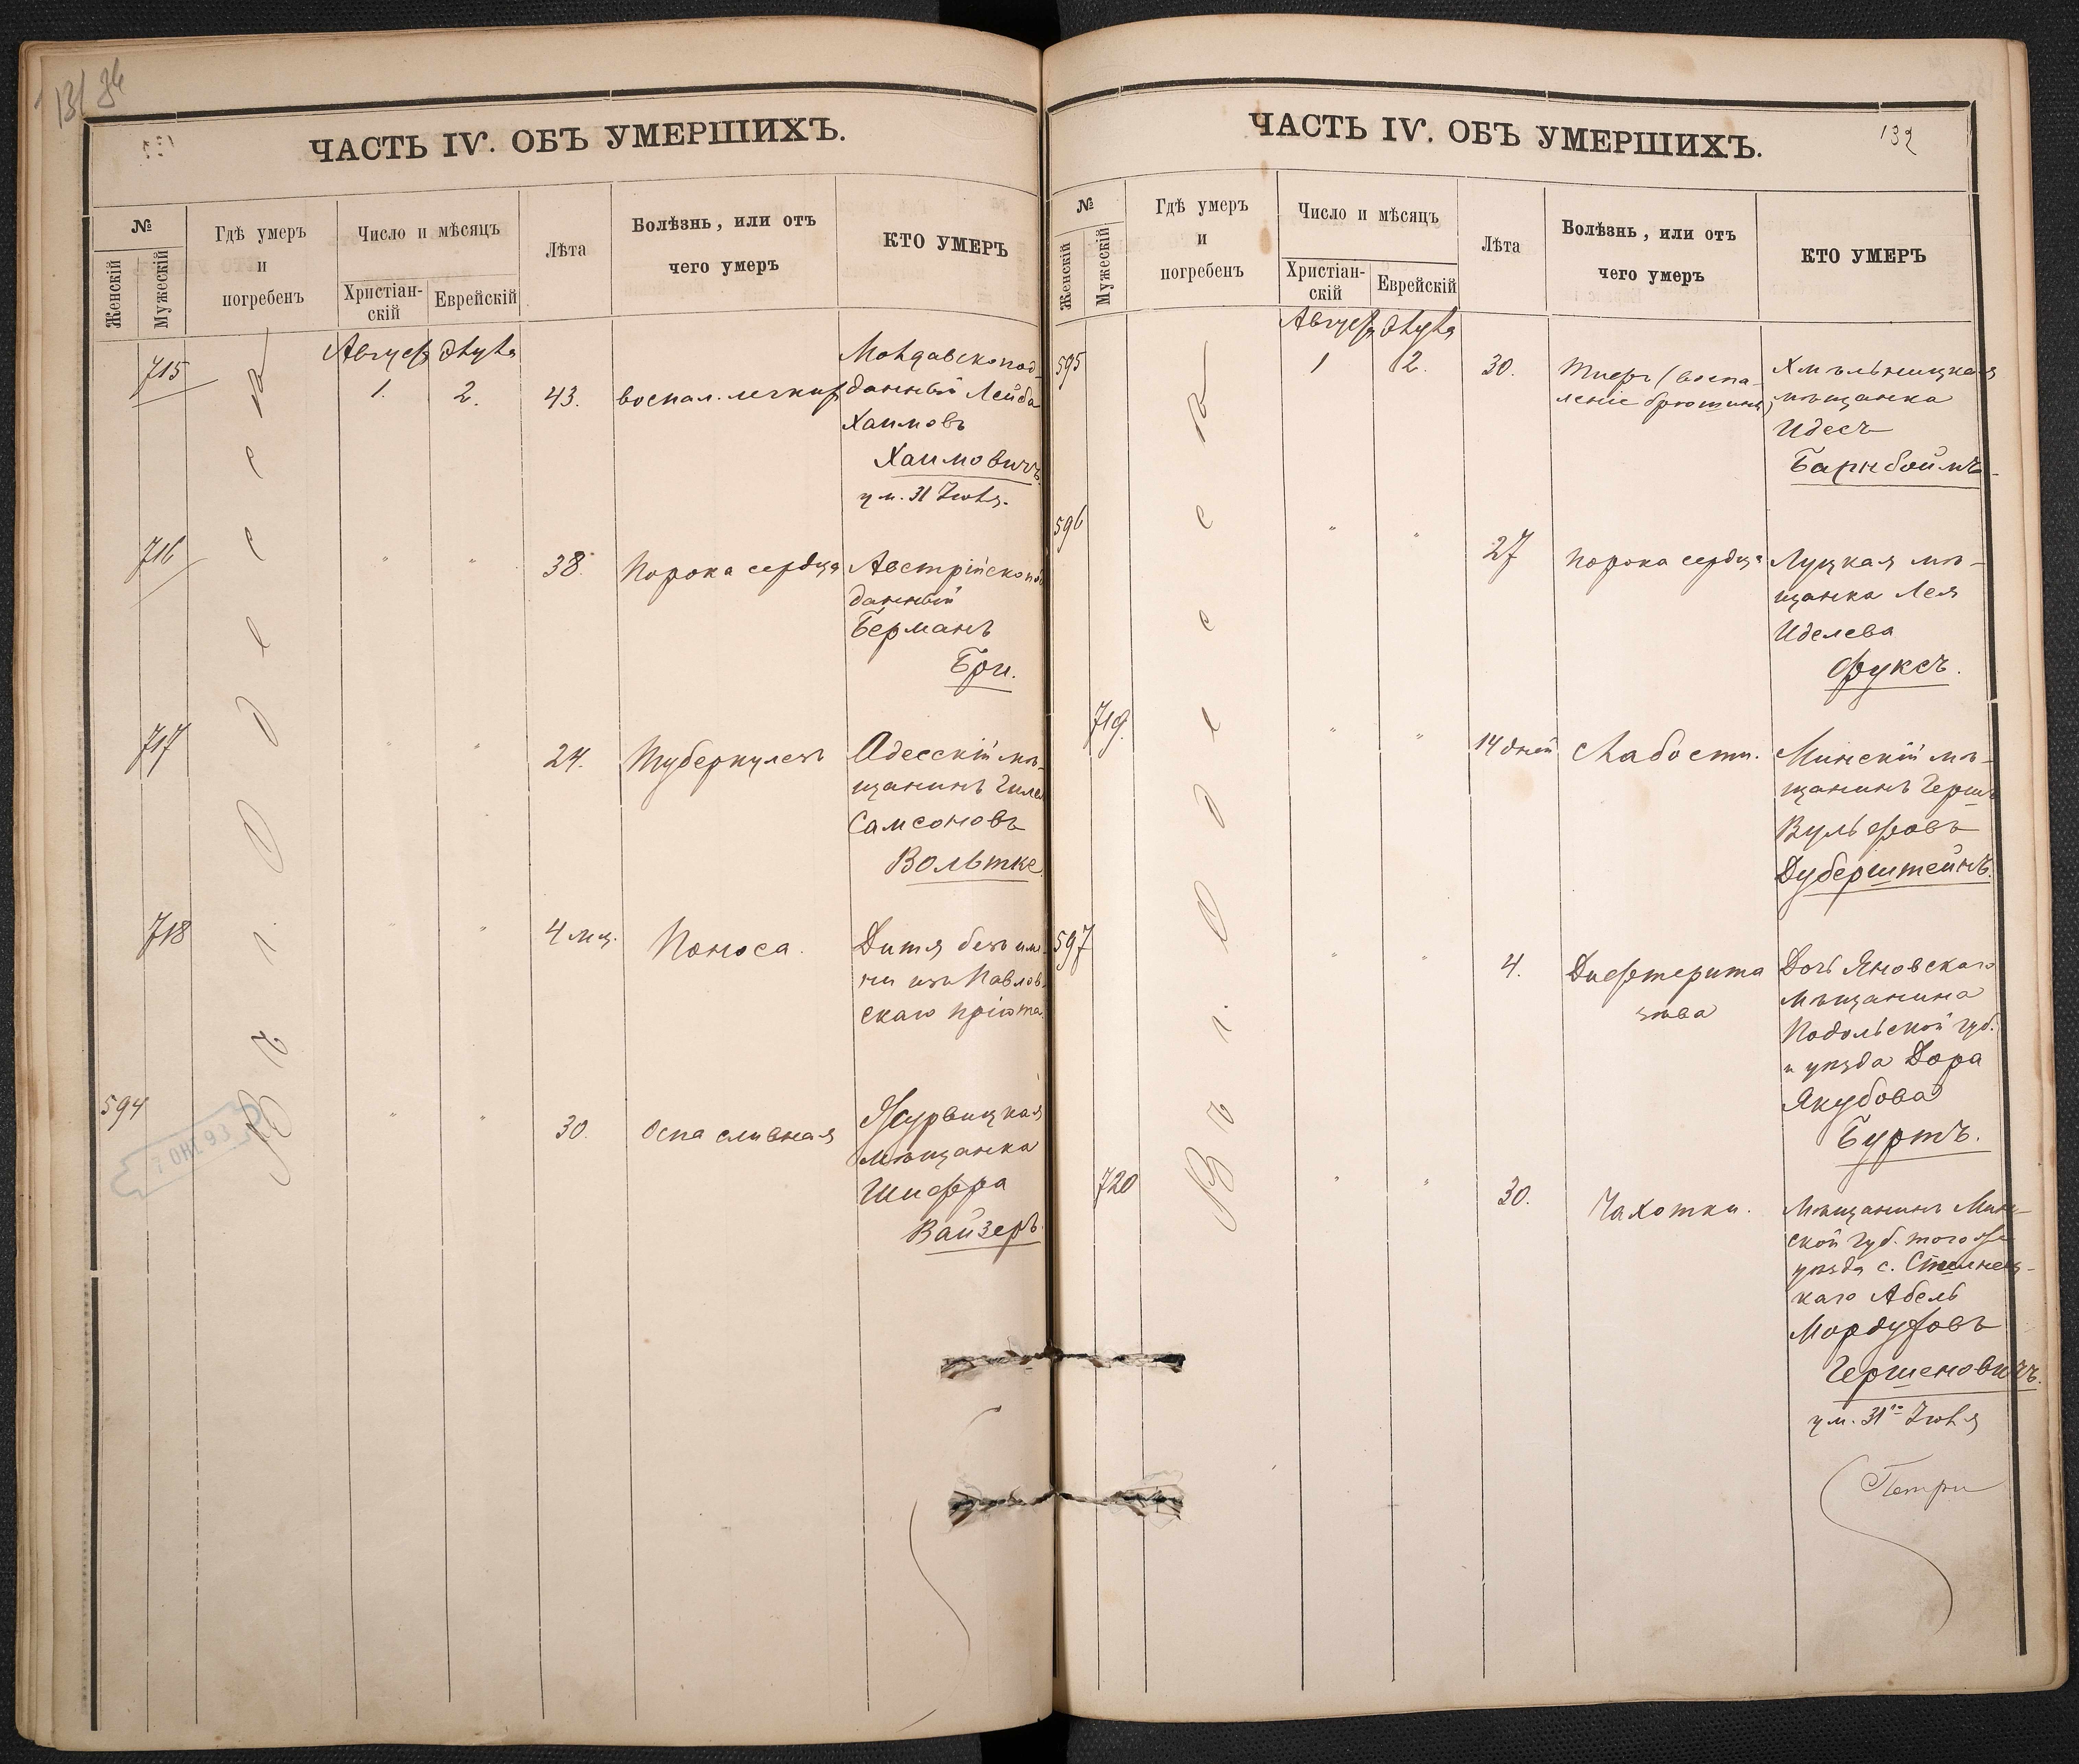 ЧАСТЬ IV. ОБЪ УМЕРШИХЪ.
№
Женскій
Мужескій
Гдѣ умеръ
и
погребенъ
Число и мѣсяцъ
Христіан-
скій
Еврейскій
Лѣта
Болѣзнь, или отъ
чего умеръ
КТО УМЕРЪ
Въ г. Одессѣ
Августа
715
1.
2.
43.
воспал. легкихъ
Молдавскопод-
данный Лейба
Хаимовъ
Хаимовичъ
ум. 31 Іюля.
716
"
"
38.
Порока сердца
Австрійскопод
данный
Берманъ
Бри.
717
"
"
24.
Туберкулезъ
Одесскій мѣ-
щанинъ
Самсоновъ
Вольтке
718
"
"
4 мѣц.
Поноса.
Дитя безъ име-
ни изъ Павлов-
скаго пріюта.
594
"
"
30.
Оспа сливная
мѣщанка
Шифра
Вайзеръ
ЧАСТЬ IV. ОБЪ УМЕРШИХЪ.
132
№
Женскій
Мужескій
Гдѣ умеръ
и
погребенъ
Число и мѣсяцъ
Христіан-
скій
Еврейскій
Лѣта
Болѣзнь, или отъ
чего умеръ
КТО УМЕРЪ
Въ г. Одессѣ
Августа
595
1
2.
30.
(воспа-
леніе брюшины)
Хмѣльницкая
мѣщанка
Идесъ
Барнбоймъ
596
"
"
27
порока сердца
Луцкая мѣ-
щанка Лея
Иделева
Фуксъ.
719.
"
"
14 дней
Слабости.
Минскій мѣ-
щанинъ Гершъ
Вульфовъ
Дуберштейнъ.
597
"
"
4.
Дифтерита
зѣва
Дочь Яновскаго
мѣщанина
Подольской губ.
и уѣзда Дора
Якубова
Буртъ.
720
"
"
30.
Чахотки.
Мѣщанинъ Мин-
ской губ. того же
уѣзда с.
каго Абель
Мордуховъ
Гершеновичъ.
ум. 31го Іюля
Петри